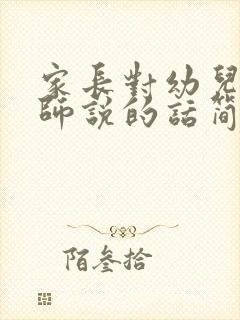 家長對幼兒
師說的話簡
陌叁拾